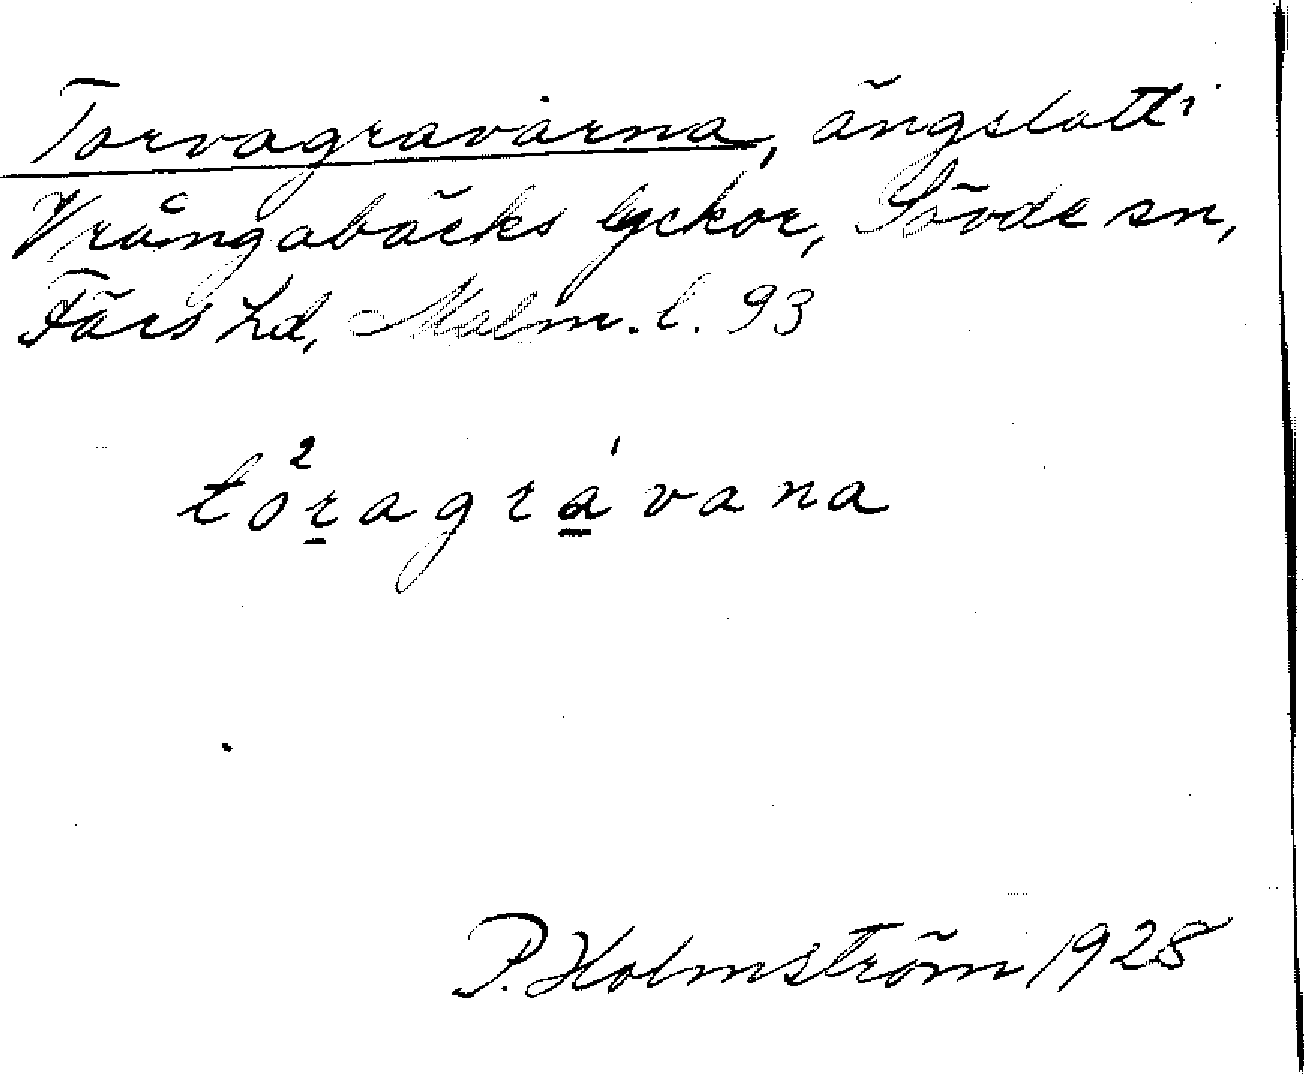 Torvagravarna, ängslott i
Vrångabäcks lyckor, Sövde sn,
Färs hd, Malm. l. 93
tò²ragrá'vana
P. Holmström 1928